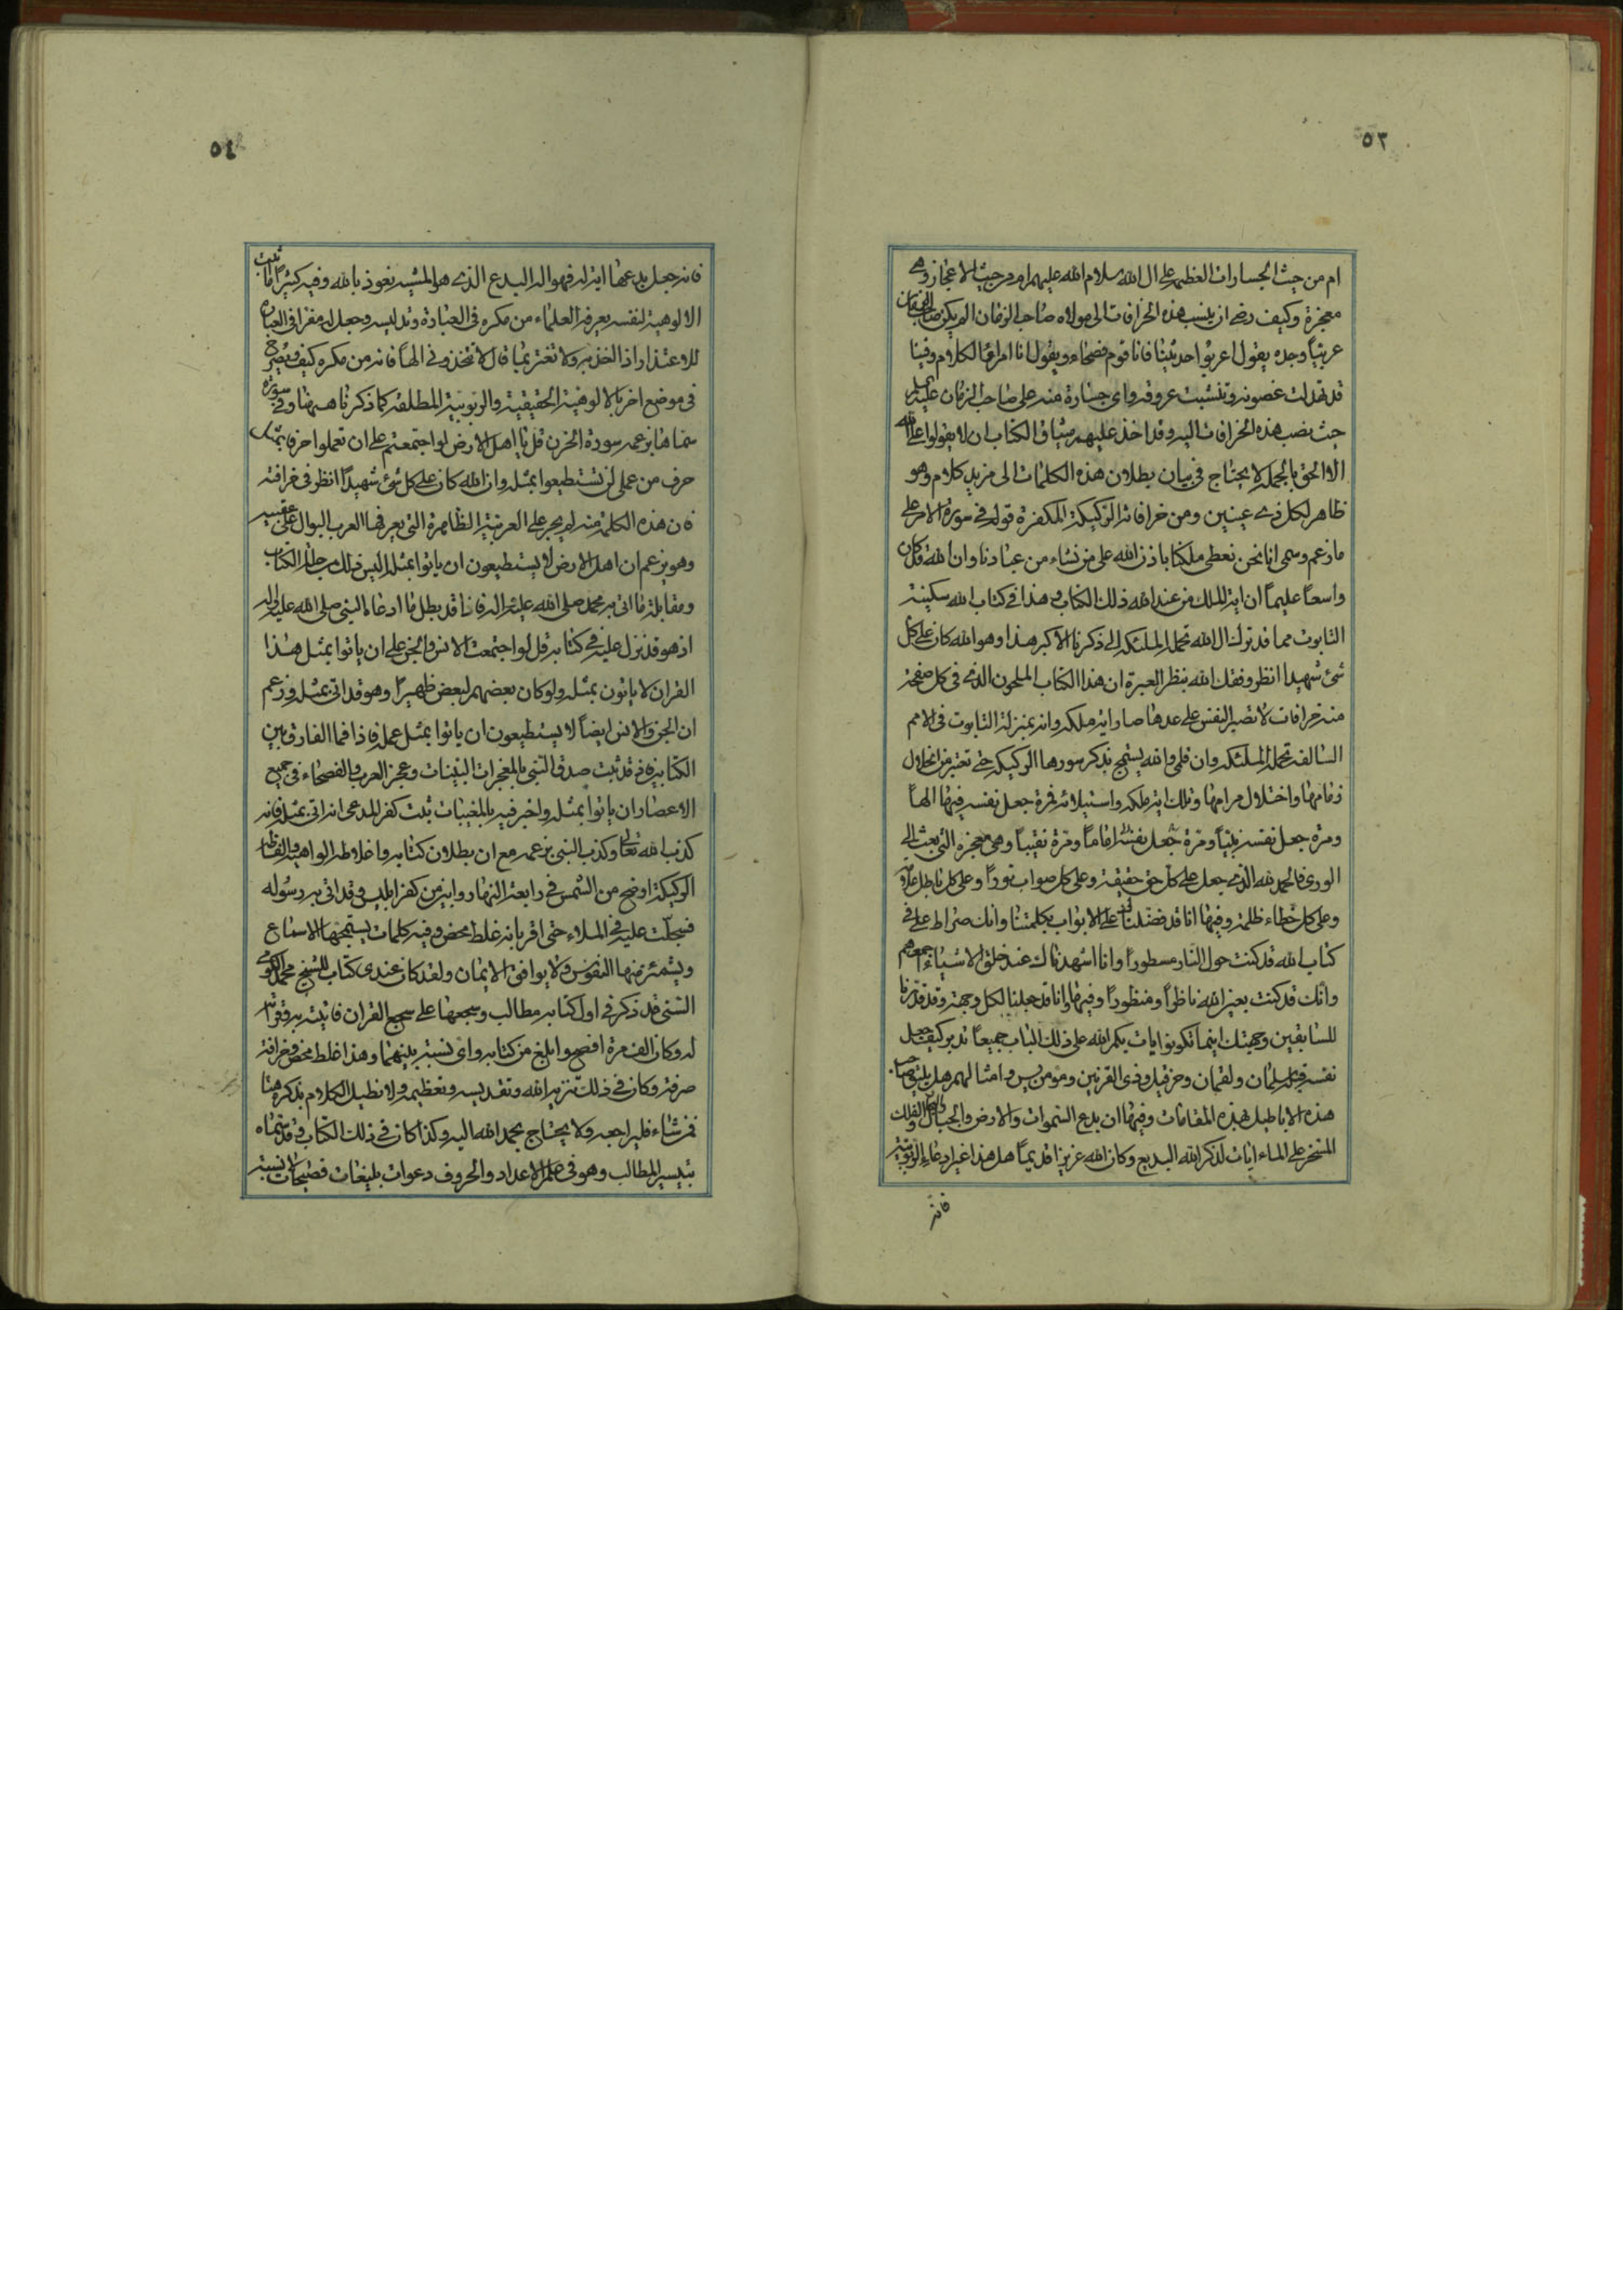 ٥٣
ام من حيث الجسارات العظيمة على ال الله سلام الله عليهم ام من حيث الاعجاز وهي
معجزة وكيف رضي ان ينسب هذه الخرافات الى مولاه صاحب الزمان الم يكن صاحب الزمان
عربيا وجده يقول اعربوا حديثنا فانا قوم فصحاء ويقول انا امراء الكلام وفينا
قد تهدلت غصونه وتنشبت عروقه واي جسارة منه على صاحب الزمان عليه السلم
حيث نصب هذه الخرافات اليه وقد اخذ عليهم ميثاق الكتاب ان لا يقولوا على الله
الا الحق بالجملة لا يحتاج في بيان بطلان هذه الكلمات الى مزيد كلام وهو
ظاهر لكل ذي عينين ومن خرافاته الركيكة المكفرة قوله في سورة الامر على
ما زعم وسمى انا نحن نعطي ملكنا باذن الله على من نشاء من عبادنا وان الله قد كان
واسعا عليما ان اية الملك من عند الله ذلك الكتاب وهذا في كتاب الله سكينة
التابوت مما قد ترك ال الله تحمله الملئكة الى ذكرنا الاكبر هذا وهو الله كان على كل
شئ شهيدا انظر وفقك الله بنظر العبرة ان هذا الكتاب الملحون الذي في كل صفحة
منه خرافات لا تصير النفس على عدها صار اية ملكه وانه بمنزلة التابوت في الامم
السالفة تحمله الملئكة وان قلمي والله يستهجن بذكر سورها الركيكة حتى تعتبر من انحلال
زمامها واختلال مرامها وتلك اية ملكه واستيلائه فمرة جعل نفسه فيها الها
ومرة جعل نفسه نبيا ومرة جعل نفسه اماما ومرة نقيبا وهي معجزه التي بعث الى
الورى فالحمد لله الذي جعل على كل حق حقيقة وعلى كل صواب نورا وعلى كل باطل علامة
وعلى كل خطاء ظلمة وفيها انا قد فضلناك على الابواب بكلمتنا وانك صراط علي في
كتاب الله قد كنت حول النار مسطورا وانا اشهدناك عند خلق الاشياء اجمعهم
وانك قد كنت بعين الله ناظرا ومنظورا وفيها وانا قد جعلنا لكل وجهة وقد قدرنا
للسابقين وجهتك اينما تكونوا يات بكم الله على ذلك الباب جميعا تدبر كيف جعل
نفسه قبلة سلمان ولقمان وحزقيل وذي القرنين ومومن يس وامثالهم هل يليق صاحب
هذه الاباطيل بهذه المقامات وفيها ان بدع السموات والارض والجبال والبحار والفلك
المسخر على الماء ايات لذكر الله البديع وكان الله عزيزا قديما هل هذا غير ادعاء الربوبية
فانه
٥٤
فانه جعل بدعها اية له فهو اله البدع الذي هو المشية نعوذ بالله وفيه كثيرا ما يثبت
الالوهية لنفسه يعرفه العلماء من مكره في العبادة وتدليسه وجعل له مفرا في العبارة
للاعتذار اذا اخذ به ولا تغتر بما قال لا تتخذوني الها فانه من مكره كيف ويصرح
في موضع اخر بالالوهية الحقيقية والربوبية المطلقة كما ذكرنا ههنا وفي سورة
سماها بزعمه سورة الحزن قل يا اهل الارض لو اجتمعتم على ان تعملوا حرفا بمثل
حرف من عملي لن تستطيعوا بمثله وان الله كان على كل شئ شهيدا انظر في خرافته
فان هذه الكلمة منه لم يجر على العربية الظاهرة التي يعرفها العرب البوال على عقبيه
وهو يزعم ان اهل الارض لا يستطيعون ان ياتوا بمثله اليس ذلك من حال الكتاب
ومقابلة ما اتى به محمد صلى الله عليه واله فاذا قد بطل ما ادعاه النبي صلى الله عليه واله
اذ هو قد نزل عليه في كتابه قل لو اجتمعت الانس والجن على ان ياتوا بمثل هذا
القران لا ياتون بمثله ولو كان بعضهم لبعض ظهيرا وهو قد اتى بمثله وزعم
ان الجن والانس ايضا لا يستطيعون ان ياتوا بمثل عمله فاذا فما الفارق بين
الكتابين فاذ قد ثبت صدق النبي بالمعجزات البينات وعجز العرب والفصحاء في جميع
الاعصار ان ياتوا بمثله واخبر فيه بالمغيبات ثبت كفر المدعي انه اتى بمثله فانه
كذب الله تعالى وكذب النبي بزعمه مع ان بطلان كتابه واغلاطه الواهية والفاظه
الركيكة اوضح من الشمس في رابعة النهار وابين من كفر ابليس وقد اتى به رسوله
فسجلت عليه في الملاء حتى اقر بانه غلط محض وفيه كلمات يستهجنها الاسماع
ويشمئز منها النفوس ولا يوافق الايمان ولقد كان عندي كتاب للشيخ محمد الكومي
السني قد ذكر في اول كتابه مطالب وسجعها على سجع القران فاتيت به وقرأته
له وكان الف مرة افصح وابلغ من كتابه واي نسبة بينهما وهذا غلط محض وخرافة
صرفة وكان في ذلك تنزيه الله وتقديسه وتعظيمه ولا نطيل الكلام بذكره هنا
فمن شاء فليراجعه ولا يحتاج بحمد الله اليه وكذا كان في ذلك الكتاب وقد سماه
تيسير المطالب وهو في علم الاعداد والحروف دعوات بليغات فصيحات لا نسبة